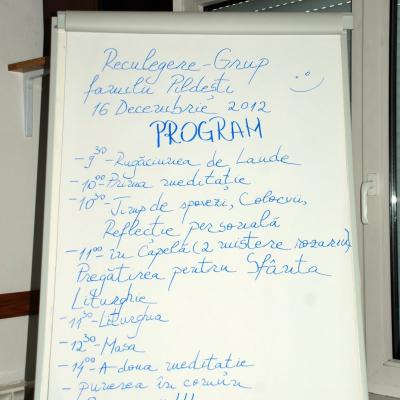 Reculegere-Grup
familii Pildești
16 Decembrie 2012
PROGRAM
-9³⁰-Rugăciunea de Laude
-10⁰⁰-Prima meditație
-10³⁰-Timp de spovezi, Colocvii,
Reflecție personală
-11⁰⁰ în Capelă (2 mistere rozariu)
Pregătirea pentru Sfânta
Liturghie
-11³⁰-Liturghia
-12³⁰-Masa
-14⁰⁰-A doua meditație
- punerea în comun